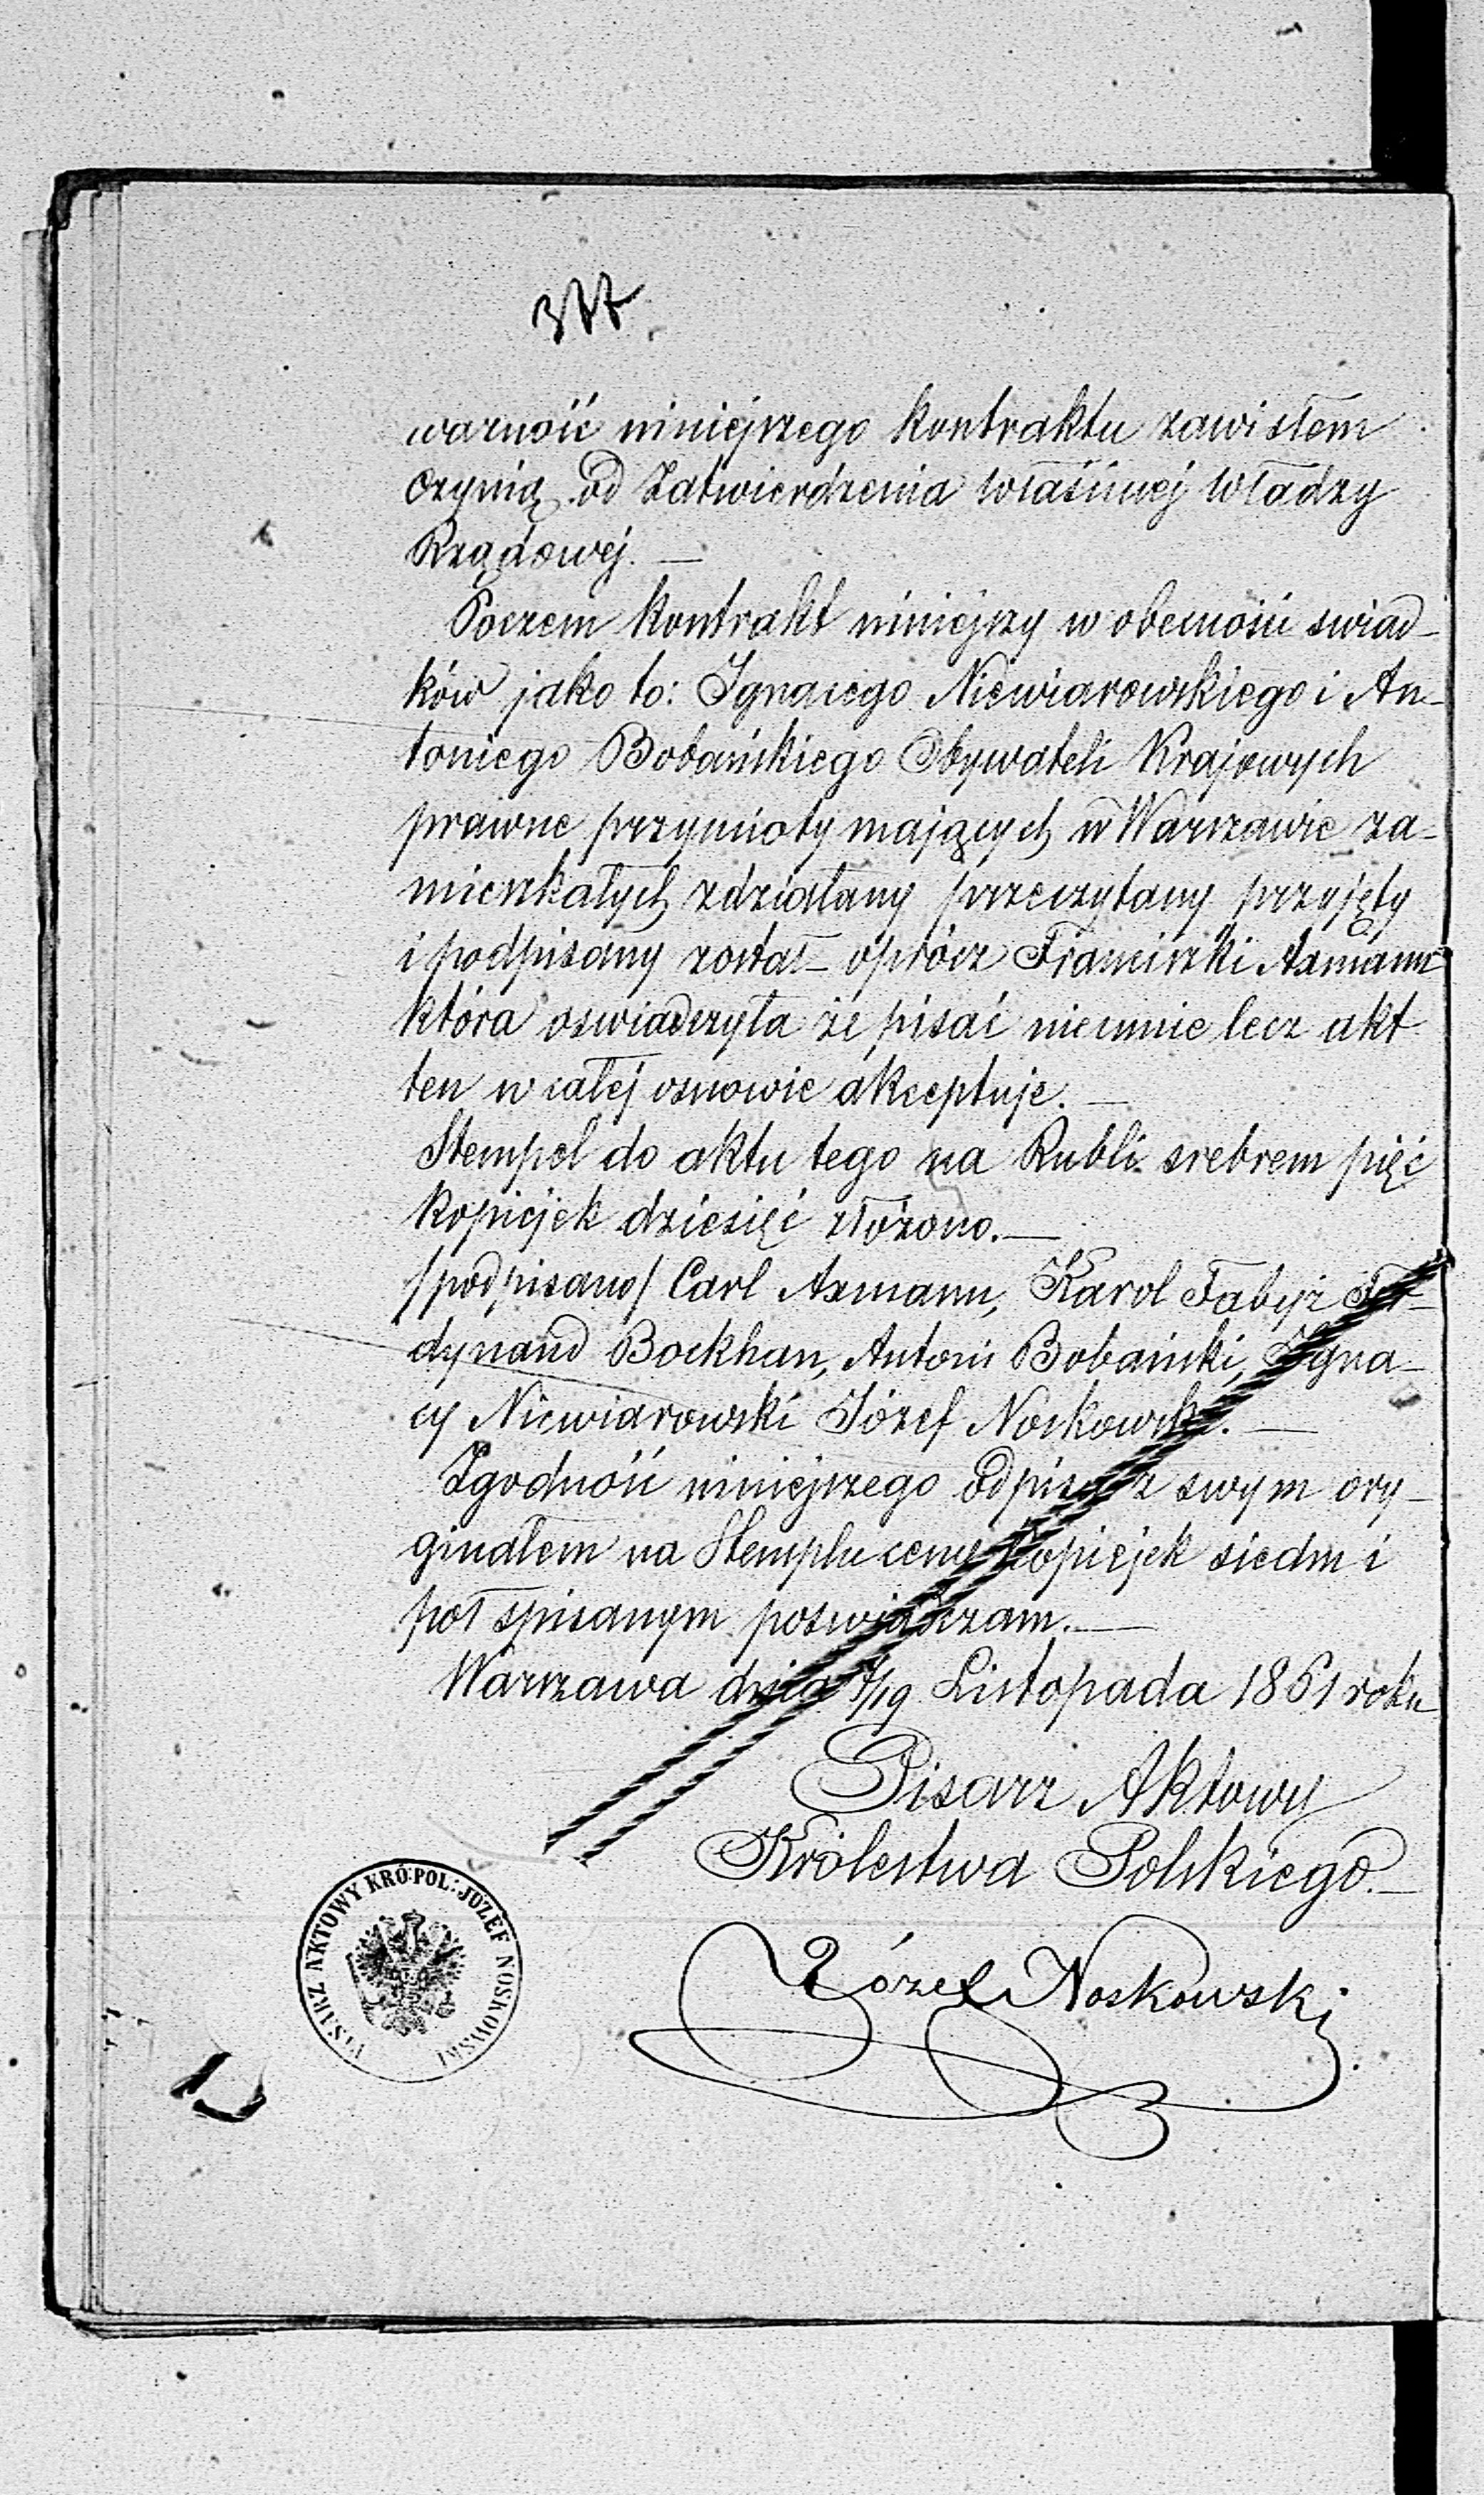 377
ważność niniejszego kontraktu zawisłem
czynią od Zatwierdzenia właściwej Władzy
Rządowej. —
Poczem kontrakt niniejszy w obecności swiad-
ków jako to: Ignacego Niewiarowskiego i An-
toniego Bobańskiego Obywateli Krajowych
prawne przymioty mających w Warszawie za-
mieszkałych zdziałany przeczytany przyjęty
i podpisany został oprócz Franciszki Axmann
która oswiadczyła że pisać nieumie lecz akt
ten w całej osnowie akceptuje. —
Stempel do aktu tego na Rubli srebrem pięć
kopiejek dziesięć złożono. —
/podpisano/ Carl Axmann, Karol Fabyż Fer-
dynand Bockhan, Antoni Bobański, Igna-
cy Niewiarowski Józef Noskowski. —
Zgodność niniejszego odpisu z swym ory-
ginałem na Stemplu ceny kopiejek siedm i
poł spisanym poswiadczam. —
Warszawa dnia 7/19 Listopada 1861 roku
Pisarz Aktowy
Królestwa Polskiego. —
Józef Noskowski
PISARZ AKTOWY KRÓ: POL: JÓZEF NOSKOWSKI